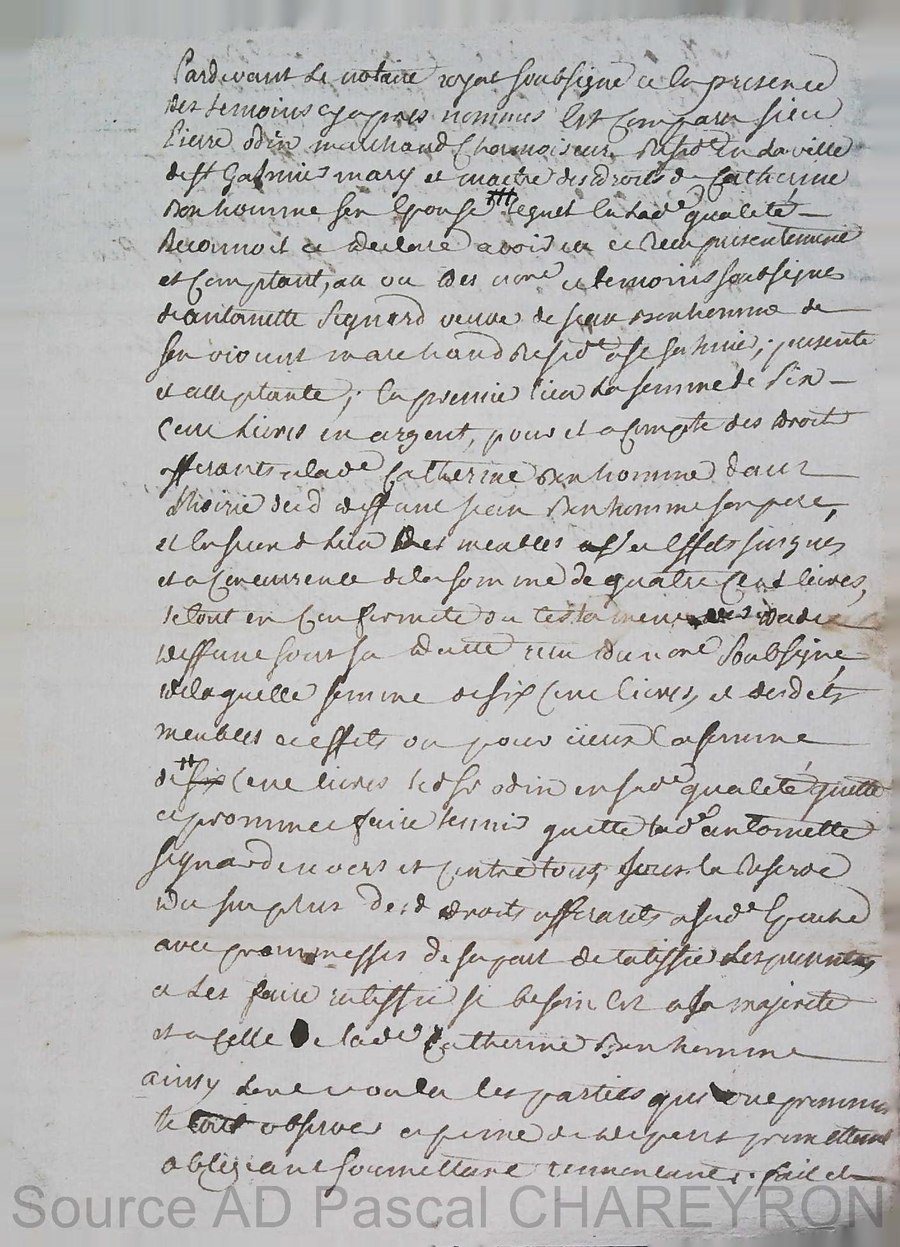 Pardevant le notaire royal soubsigné et en la presence
des temoins cy apres nommés est comparu sieur
Pierre Odin marchand chamoiseur resid.t en la ville
de St Galmier mary et maitre des droits de Catherine
Bonhomme son epouse lequel en lad.e qualité
reconnoit et declare avoir eu et recu presentement
et comptant, au vu des no.re et temoins soubsignes
de antoinette Pignard veuve de jean Bonhomme de
son vivant marchand resid.t a St Galmier, presente
et acceptante, en premier lieu la somme de six
cent livres en argent, pour et a compte des droits
afferants a lad.e Catherine Bonhomme dans
l'hoirie dud deffunt jean Bonhomme son pere,
et en second lieu des meubles et effets jusques
et a concurrence de la somme de quatre cent livres,
le tout en conformité du testament dud
deffunt sous sa datte recu du no.re soubsigné
de laquelle somme de six cent livres, et desdits
meubles et effets ou pour iceux la somme
de cent livres led Sr odin en sad.e qualité quitte
et promet faire tenir quitte lad.e antoinette
Pignard envers et contre tous, sous la reserve
du surplus desd droits afferants a sad.e epouse
avec promesses de sa part de ratiffier les presentes
et les faire ratiffier si besoin est a sa majorité
et a celle de lad.e Catherine Bonhomme
ainsy l'ont voulu les parties qui ont promis
le tout observer a peine de depens promettant
obligeant soumettant renonceant. fait et
Source AD Pascal CHAREYRON